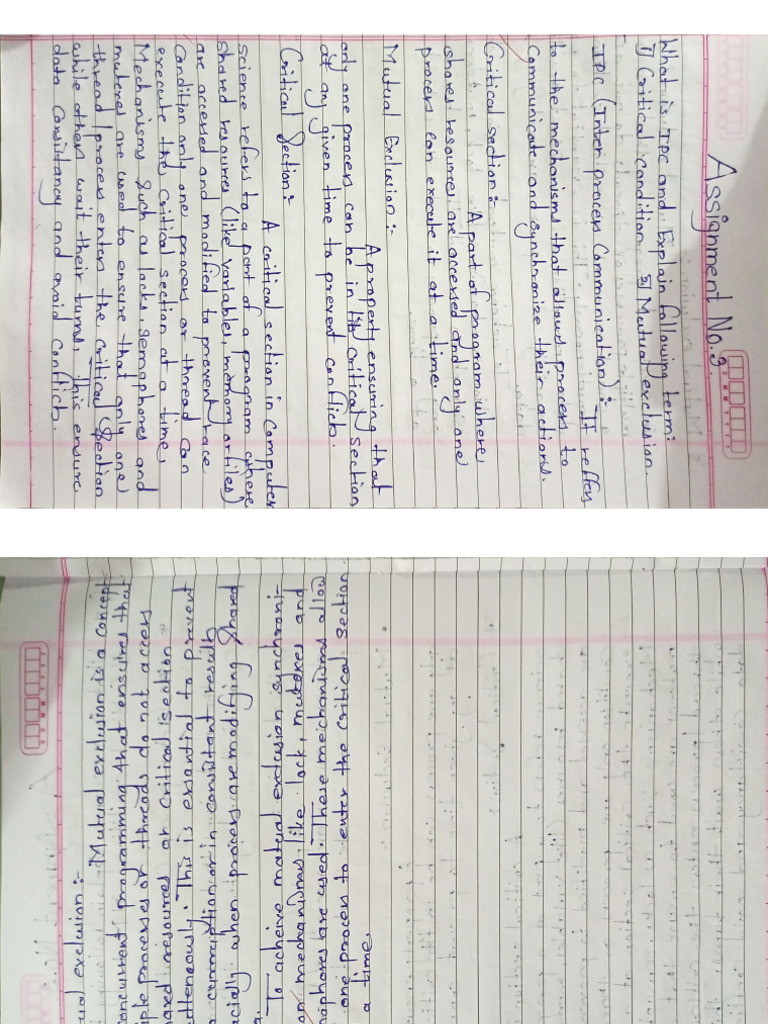 Assignment No. 3.
What is IPC and Explain following term:
i) Critical condition ii) Mutual exclusion.
IPC (Inter process Communication) :- It reffers
to the mechanisms that allows process to
communicate and synchronize their actions.
Critical section:-
A part of program where
shares resources are accessed and only one
process can execute it at a time.
Mutual Exclusion :-
A property ensuring that
only one process can be in its critical section
at any given time to prevent conflicts.
Critical Section:-
A critical section in Computer
science refers to a part of a program where
shared resources (like variables, memory or files)
are accessed and modified to prevent race
Condition only one process or thread can
execute the critical section at a time,
Mechanisms such as locks, semaphores and
mutexes are used to ensure that only one
thread / process enters the critical section
while others wait their turns, This ensure
data Consistancy and avoid Conflicts.
exclusion :-
Mutual exclusion is a concept
concurrent programming that ensures that
processes or threads do not access
resources or critical section
This is essential to prevent
corruption or in consistant results
when process are modifying shared
To acheive matual exclusion synchroni-
mechanisms like lock, mutexes and
are used. These mechanisms allow
one process to enter the critical section
a time.